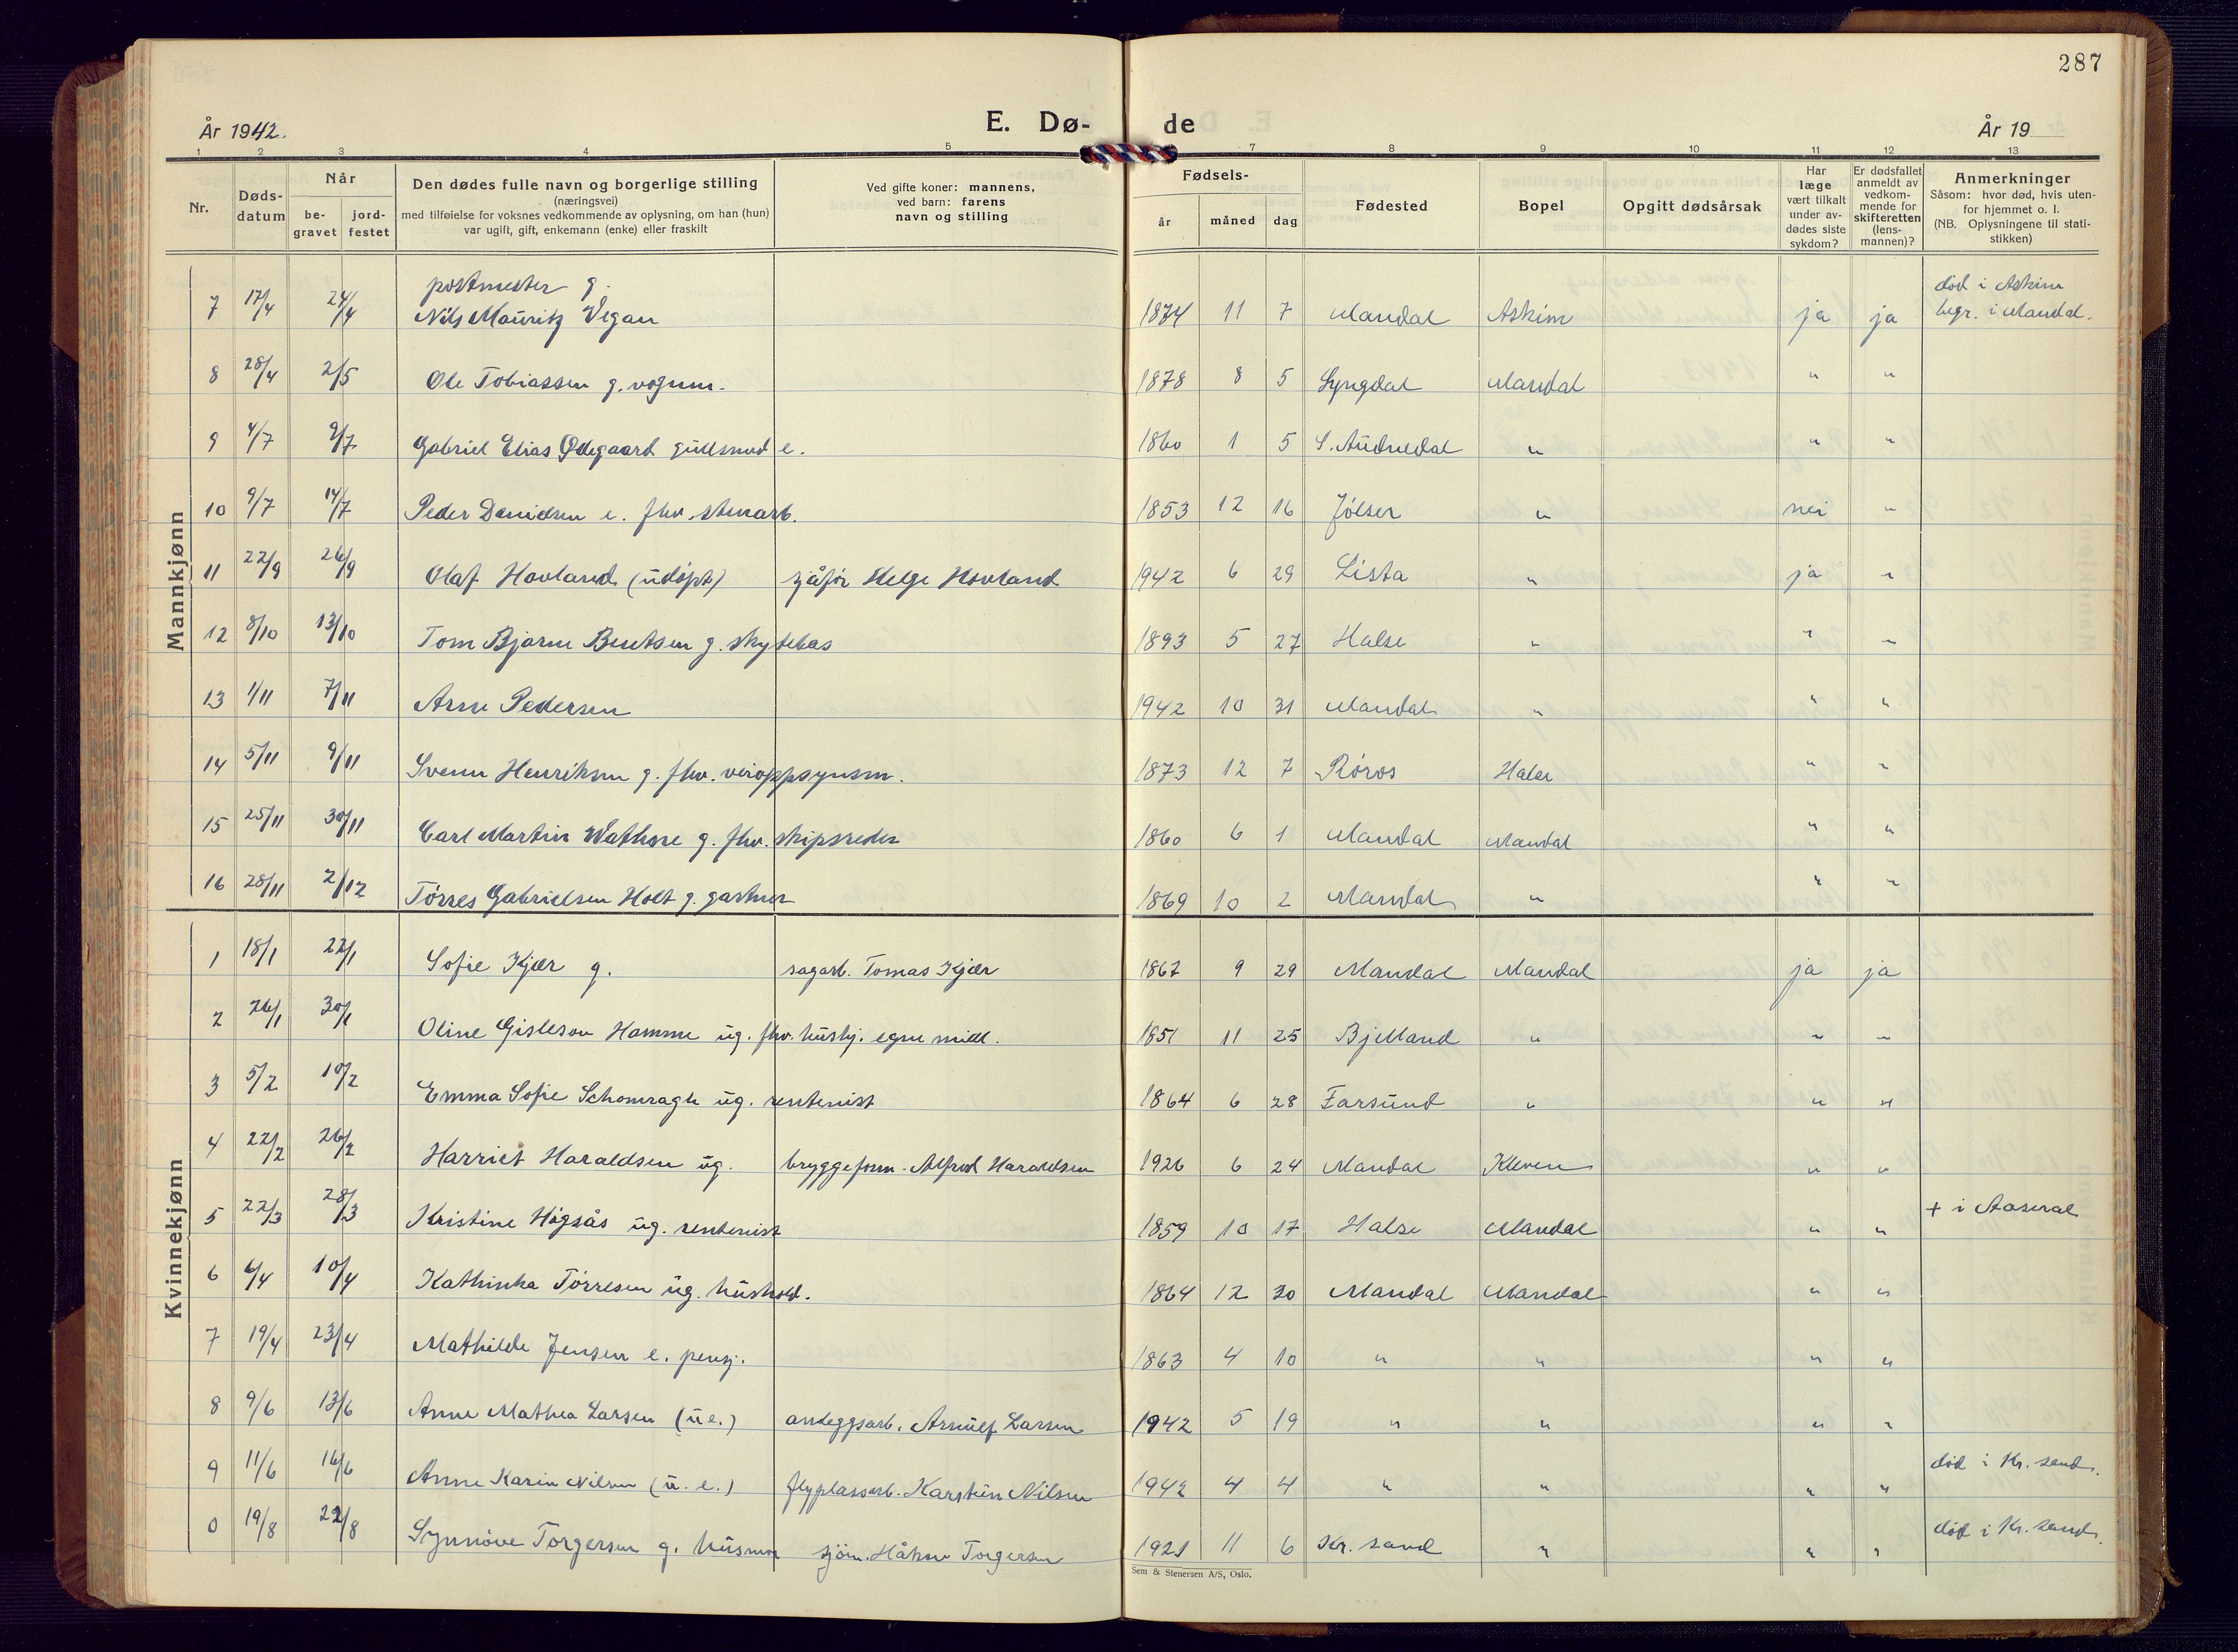 287
År 1942. E. Dø- de År 19
1 2 3 4 5 7 8 9 10 11 12 13
Nr. Døds-datum Når be-gravet jord-festet Den dødes fulle navn og borgerlige stilling (næringsvei) med tilføielse for voksnes vedkommende av oplysning, om han (hun) var ugift, gift, enkemann (enke) eller fraskilt Ved gifte koner: mannens, ved barn: farens navn og stilling Fødsels- år måned dag Fødested Bopel Opgitt dødsårsak Har læge vært tilkalt under av-dødes siste sykdom? Er dødsfallet anmeldt av vedkom-mende for skifteretten (lens-mannen)? Anmerkninger Såsom: hvor død, hvis uten-for hjemmet o. l. (NB. Oplysningene til stati-stikken)
Mannkjønn
postmester g. død i Askim
7 17/4 24/4 Nils Mauritz Vegan 1874 11 7 Mandal Askim ja ja begr. i Mandal.
8 28/4 2/5 Ole Tobiassen g. vognm. 1878 8 5 Lyngdal Mandal " "
9 4/7 9/7 Gabriel Elias Ødegaard gullsmed e. 1860 1 5 S. Audnedal " " "
10 9/7 14/7 Peder Danielsen e. fhv. stenarb. 1853 12 16 Jølser " nei "
11 22/9 26/9 Olaf Hovland (udøpt) sjåfør Helge Hovland 1942 6 29 Lista " ja "
12 8/10 13/10 Tom Bjarne Bentsen g. skytebas 1893 5 27 Halse " " "
13 1/11 7/11 Arne Pedersen 1942 10 31 Mandal " " "
14 5/11 9/11 Svenn Henriksen g. fhv. veioppsynsm. 1873 12 7 Røros Halse " "
15 25/11 30/11 Carl Martin Wathne g. fhv. skipsreder 1860 6 1 Mandal Mandal " "
16 28/11 2/12 Tørres Gabrielsen Holt g. gartner 1869 10 2 Mandal " " "
Kvinnekjønn
1 18/1 22/1 Sofie Kjær g. sagarb. Tomas Kjær 1867 9 29 Mandal Mandal ja ja
2 26/1 30/1 Oline Gisleson Homme ug. fhv. hushj. egne midl. 1851 11 25 Bjelland " " "
3 5/2 10/2 Emma Sofie Schomragh ug. rentenist 1864 6 28 Farsund " " "
4 22/2 26/2 Harriet Haraldsen ug. bryggeform. Alfred Haraldsen 1926 6 24 Mandal Kleven " "
5 22/3 28/3 Kristine Høgsås ug. rentenist 1859 10 17 Halse Mandal " " + i Aaseral
6 6/4 10/4 Kathinka Tørresen ug. hushold. 1864 12 30 Mandal Mandal " "
7 19/4 23/4 Mathilde Jensen e. pensj. 1863 4 10 " " " "
8 9/6 13/6 Anne Mathea Larsen (u e.) anleggsarb. Arnulf Larsen 1942 5 19 " " " "
9 11/6 16/6 Anne Karin Nilsen (u. e.) flyplassarb. Karsten Nilsen 1942 4 4 " " " " død i Kr. sand.
0 19/8 22/8 Synnøve Torgersen g. husmor sjøm. Håkon Torgersen 1921 11 6 Kr. sand " " " død i Kr. sand.
Sem & Stenersen A/S, Oslo.